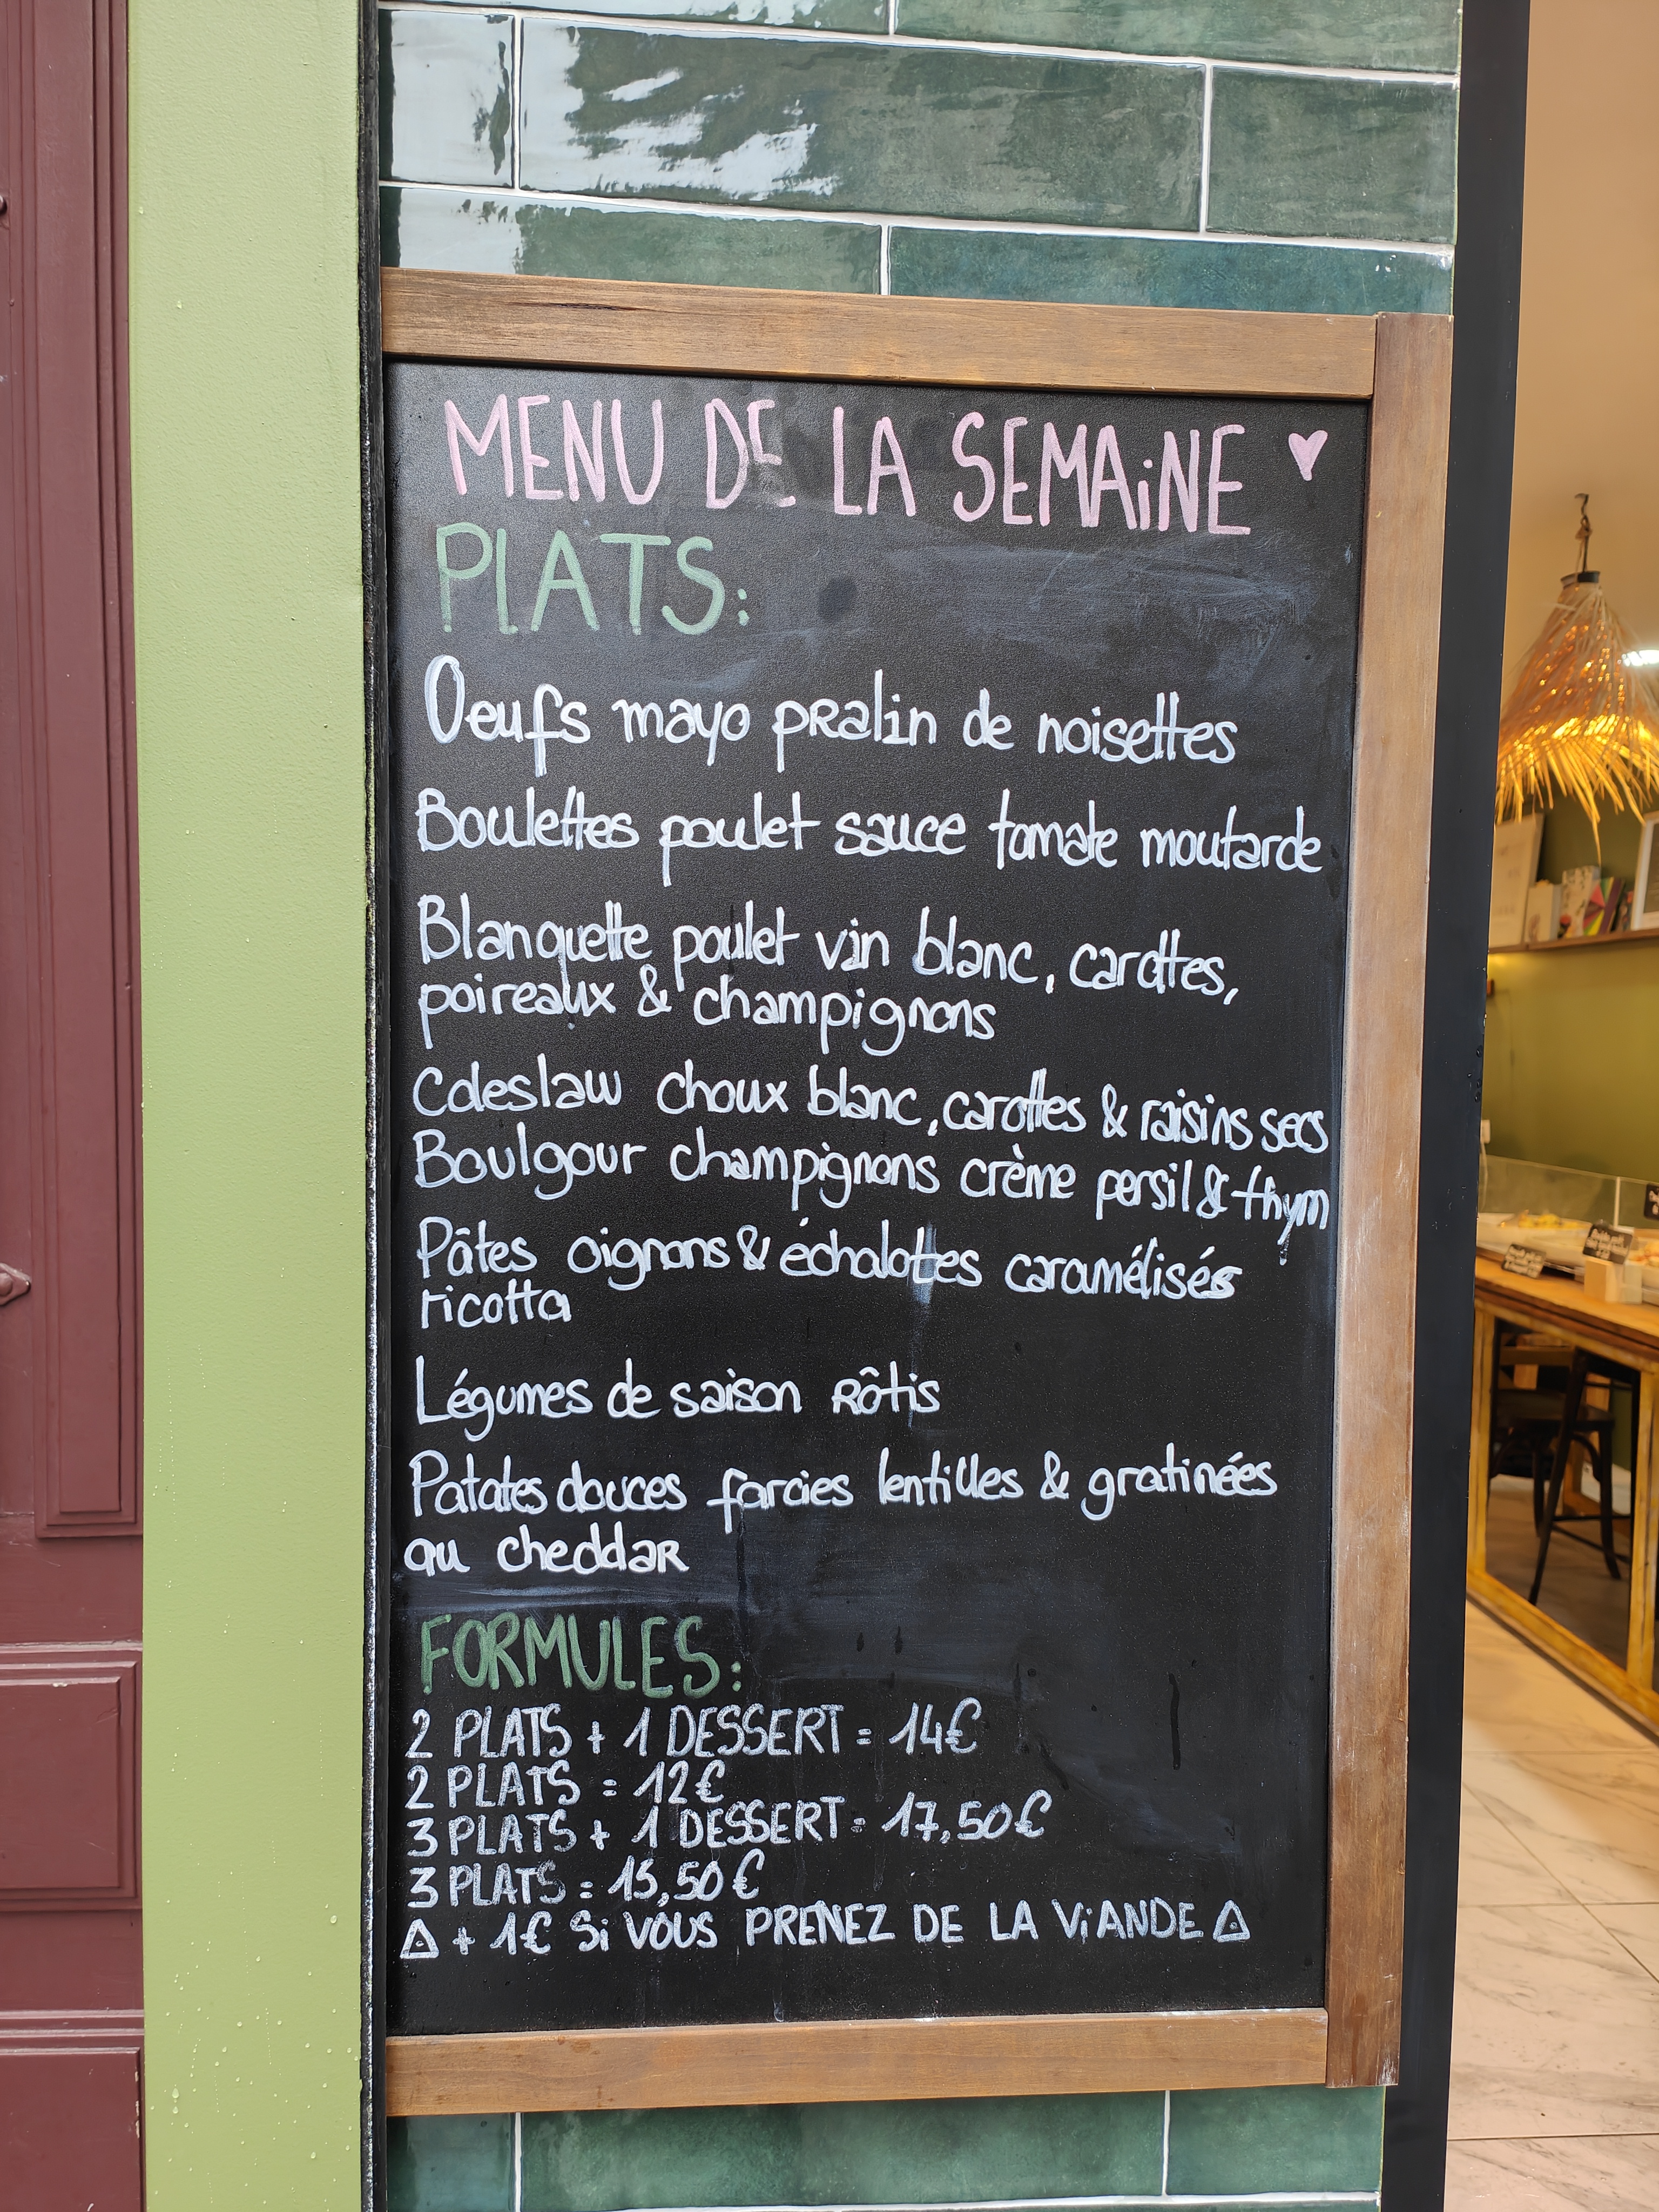 MENU DE LA SEMAiNE ♥
PLATS:
Oeufs mayo pralin de noisettes
Boulettes poulet sauce tomate moutarde
Blanquette poulet vin blanc, carottes,
poireaux & champignons
Coleslaw choux blanc, carottes & raisins secs
Boulgour champignons crème persil & thym
Pâtes oignons & échalotes caramélisés
ricotta
Légumes de saison Rôtis
Patates douces farcies lentilles & gratinées
au cheddar
FORMULES:
2 PLATS + 1 DESSERT = 14€
2 PLATS = 12€
3 PLATS + 1 DESSERT = 17,50€
3 PLATS = 15,50€
⚠ + 1€ Si VOUS PRENEZ DE LA ViANDE ⚠